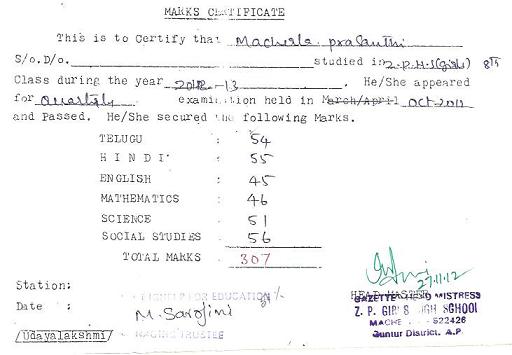 MARKS CERTIFICATE
This is to Certify that Macherla prasanthi
S/o.D/o. studied in Z.P.H.S(girls) 8th
Class during the year 2012-13. He/She appeared
for Quarterly examination held in March/April Oct 2011
and Passed. He/She secured the following Marks.
TELUGU : 54
HINDI : 55
ENGLISH : 45
MATHEMATICS : 46
SCIENCE : 51
SOCIAL STUDIES : 56
TOTAL MARKS : 307
27.11.12
Station: HEAD MASTER
FOR EDUCATION GAZETTED HEAD MISTRESS
Date : M. Sarojini Z. P. GIRLS HIGH SCHOOL
MACHE 522426
/Udayalakshmi/ MANAGING TRUSTEE Guntur District. A.P.